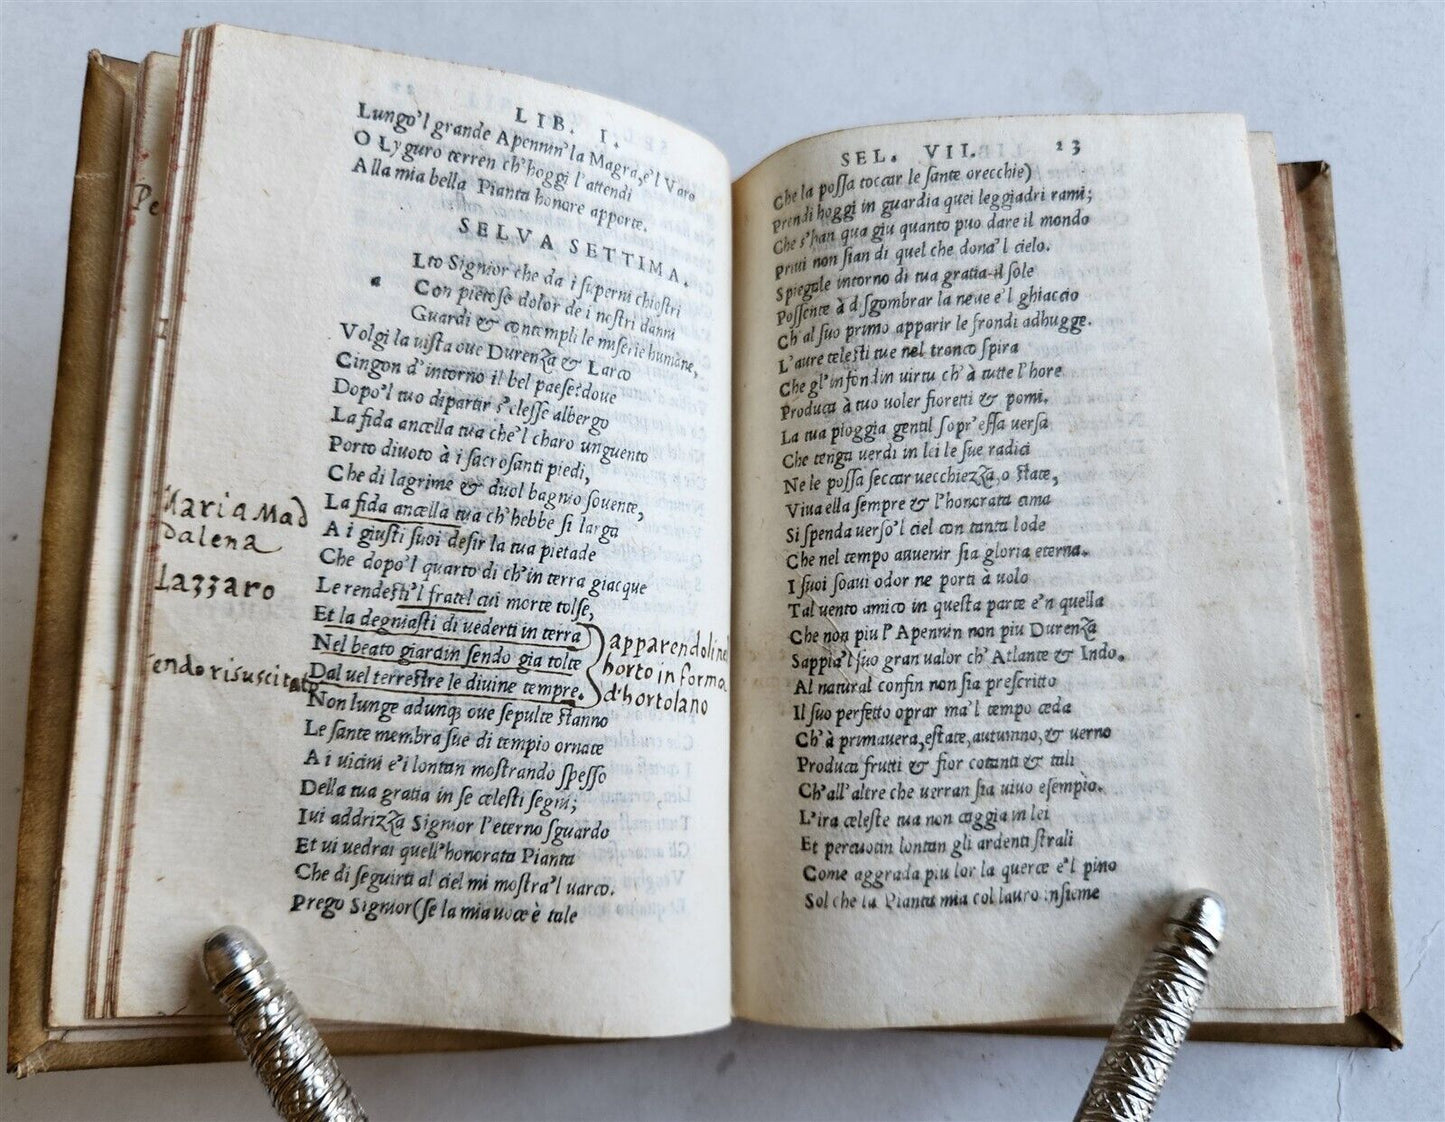 LIB. I.
Lungo'l grande Apennin'la Magra, e'l Varo
O Lyguro terren ch'hoggi l'attendi
Alla mia bella Pianta honore apporte.
SELVA SETTIMA.
a Lto Signior che da i superni chiostri
Con pietose dolor de i nostri danni
Guardi & contempli le miserie humane,
Volgi la uista oue Durenza & Larco
Cingon d'intorno il bel paese: doue
Dopo'l tuo dipartir s'elesse albergo
La fida ancella tua che'l charo unguento
Porto diuoto à i sacrosanti piedi,
Che di lagrime & duol bagnio souente,
La fida ancella tua ch'hebbe si larga
A i giusti suoi desir la tua pietade
Che dopo'l quarto di ch'in terra giacque
Le rendesti'l fratel cui morte tolse,
Et la degniasti di uederti in terra
Nel beato giardin sendo gia tolte
Dal uel terrestre le diuine tempre.
Non lunge adunq; oue sepulte stanno
Le sante membra sue di tempio ornate
A i uicini e'i lontan mostrando spesso
Della tua gratia in se celesti segni;
Iui addrizza Signor l'eterno sguardo
Et ui uedrai quell'honorata Pianta
Che di seguirti al ciel mi mostra'l uarco.
Prego Signior (se la mia uoce è tale
Pe
Maria Mad
dalena
Lazzaro
endo risuscitato
apparendoli nel
horto in forma
d'hortolano
SEL. VII. 23
Che la possa toccar le sante orecchie)
Prendi hoggi in guardia quei leggiadri rami;
Che s'han qua giu quanto puo dare il mondo
Priui non sian di quel che dona'l cielo.
Spiegale intorno di tua gratia il sole
Possente à disgombrar la neue e'l ghiaccio
Ch'al suo primo apparir le frondi adhugge.
L'aure celesti tue nel tronco spira
Che gl'infondin uirtu ch'à tutte l'hore
Produca à tuo uoler fioretti & pomi.
La tua pioggia gentil sopr'essa uersa
Che tenga uerdi in lei le sue radici
Ne le possa seccar uecchiezza, o state,
Viua ella sempre & l'honorata cima
Si spenda uerso'l ciel con tanta lode
Che nel tempo auuenir sia gloria eterna.
I suoi soaui odor ne porti à uolo
Tal uento amico in questa parte e'n quella
Che non piu l'Apennin non piu Durenza
Sappia'l suo gran ualor ch'Atlante & Indo.
Al natural confin non sia prescritto
Il suo perfetto oprar ma'l tempo ceda
Ch'à primauera, estate, autunno, & uerno
Produca frutti & fior cotanti & tali
Ch'all'altre che uerran sia uiuo esempio.
L'ira celeste tua non caggia in lei
Et percuotin lontan gli ardenti strali
Come aggrada piu lor la querce e'l pino
Sol che la Pianta mia col lauro insieme